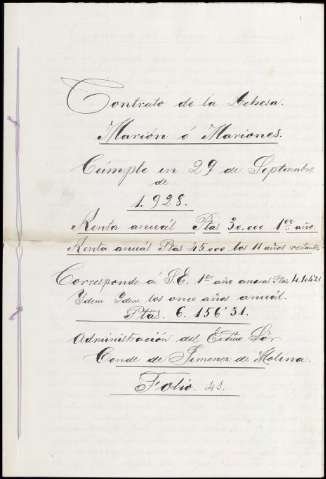 Contrato de la Dehesa.
Marion ó Mariones.
Cumple en 29 de Septiembre
de
1.928.
Renta anual Ptas 30.000 1er año.
Renta anual Ptas 45.000 los 11 años restantes
Corresponde á S.E. 1er año anual Ptas
Idem Idem los once años anual.
Ptas. 6.156'31.
Administración del Excmo Sór.
Conde de Jimenez de Molina.
Folio 43.